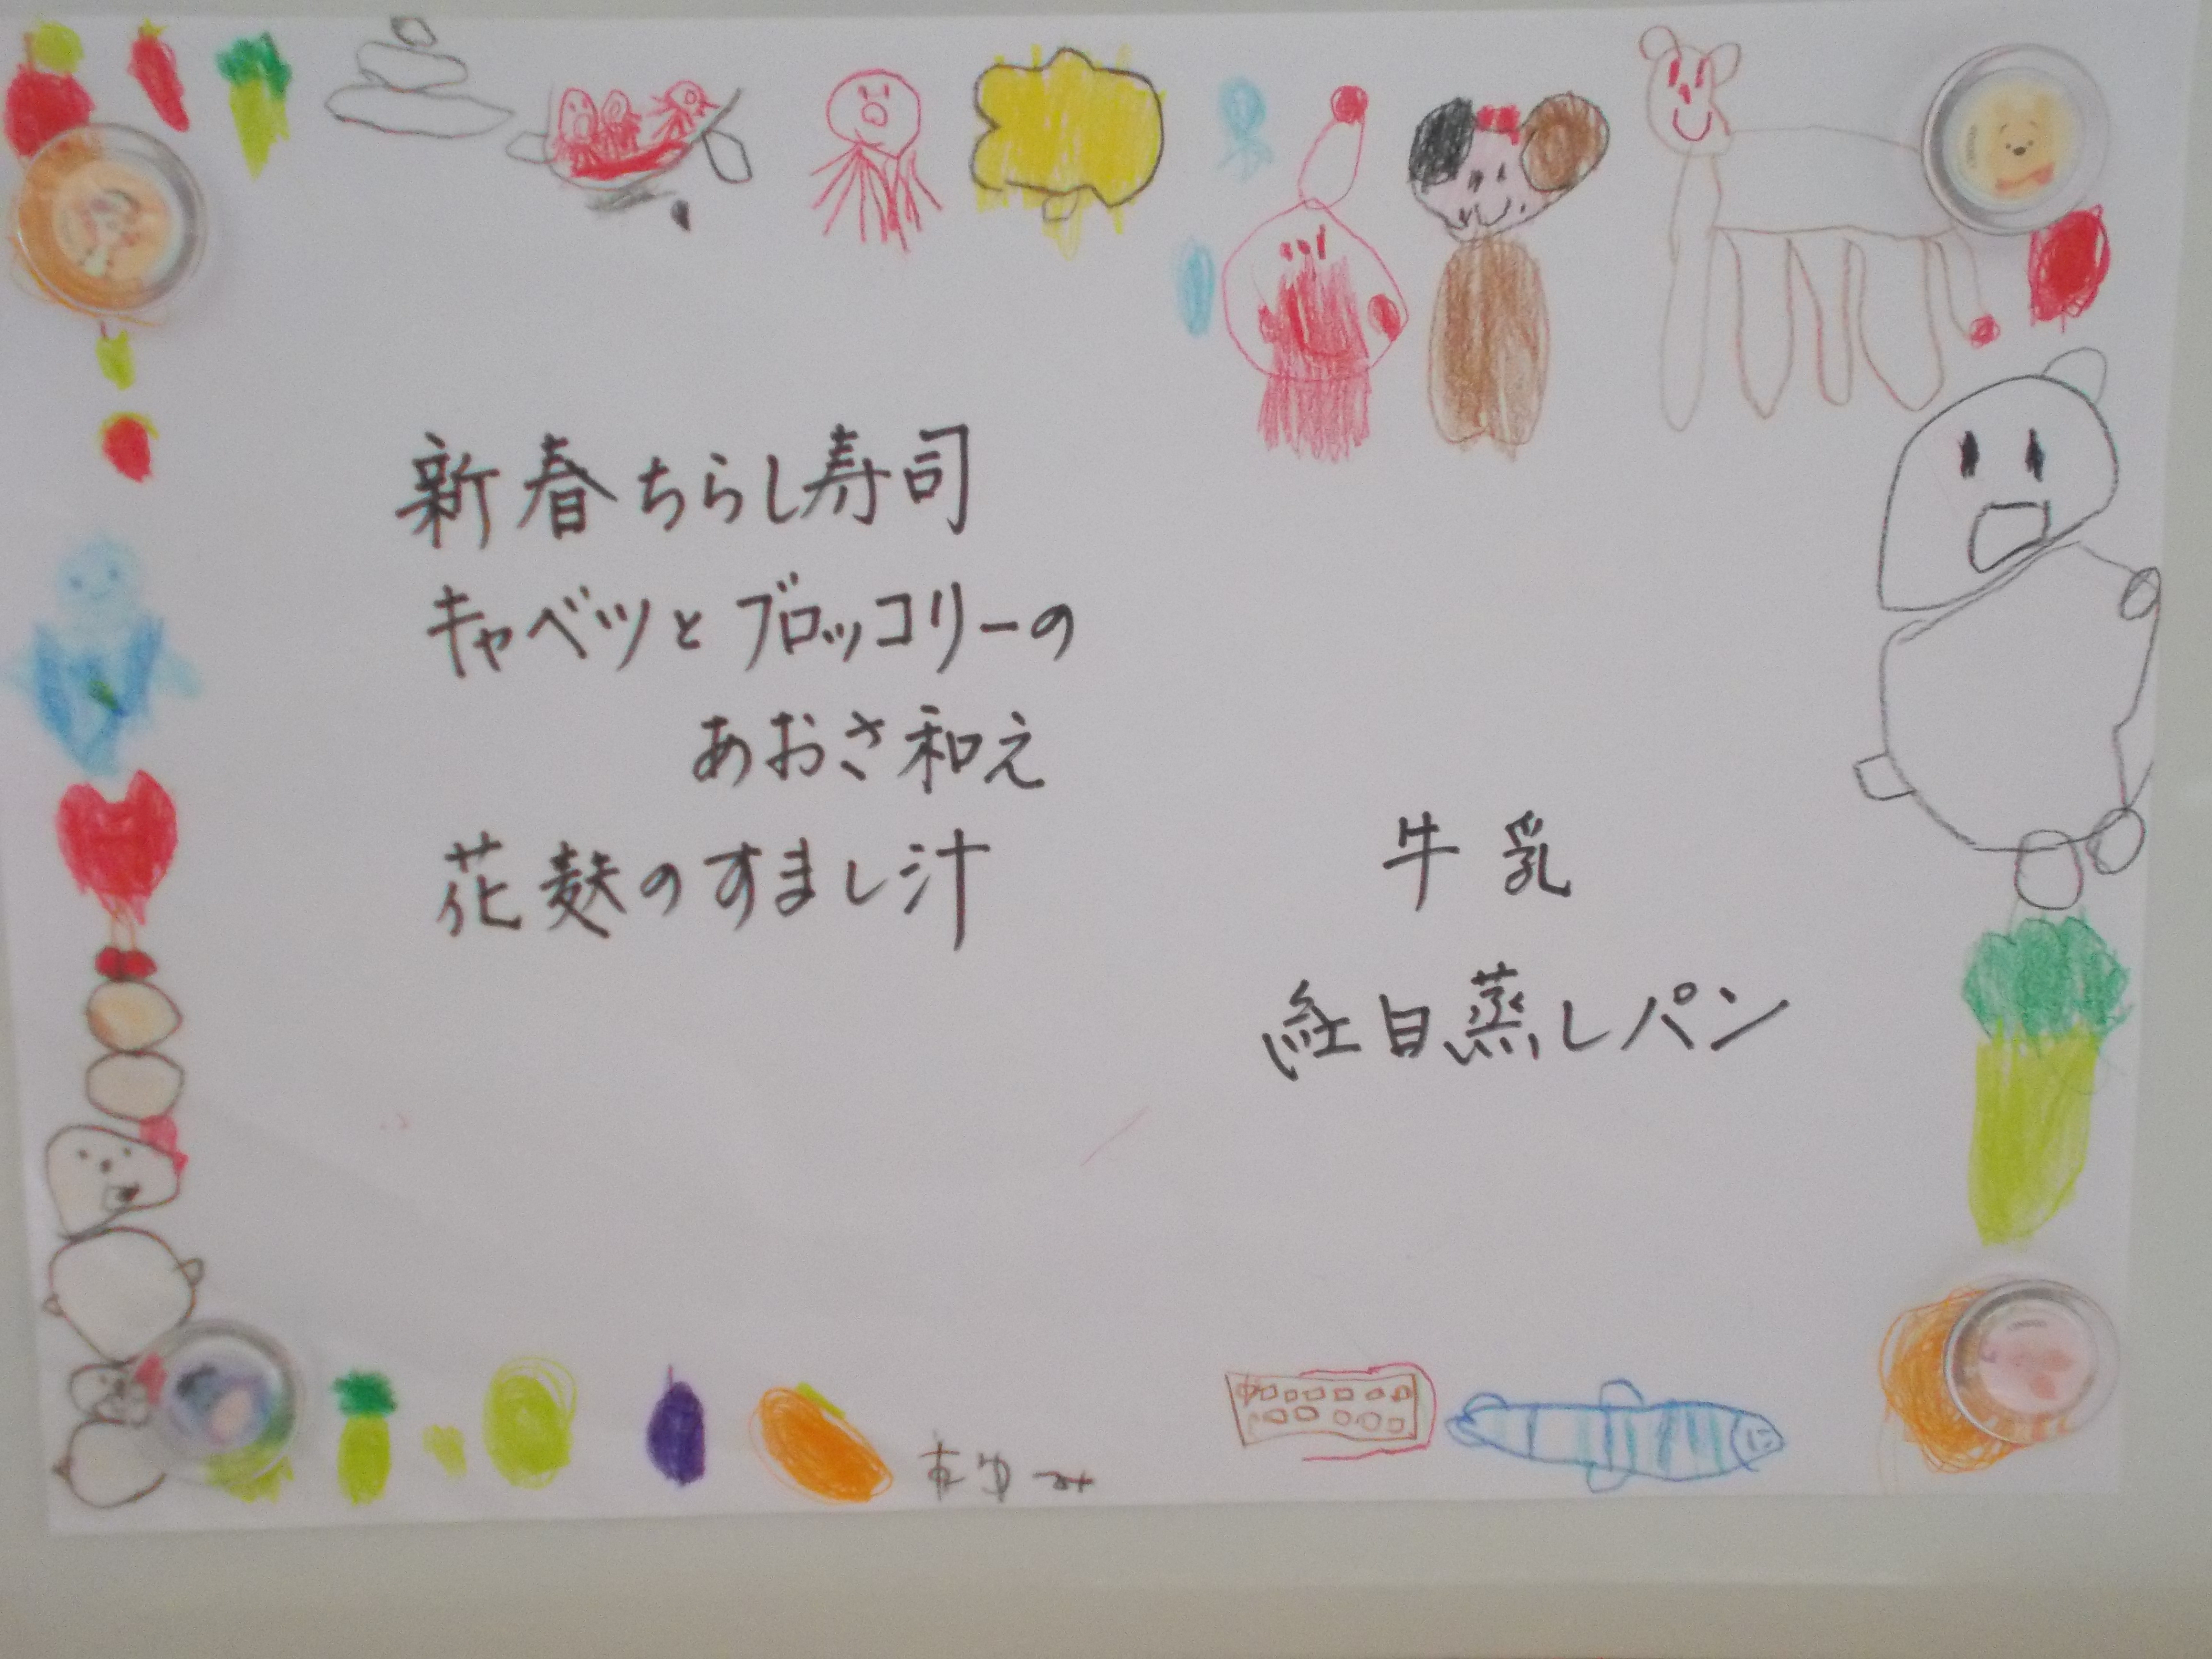 新春ちらし寿司
キャベツとブロッコリーの
あおさ和え
花麩のすまし汁
牛乳
紅白蒸しパン